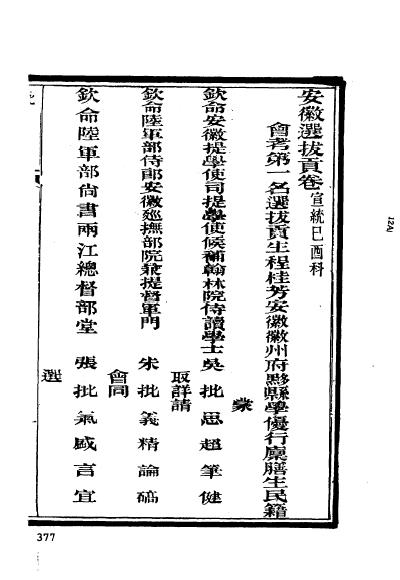 安徽選拔貢卷 宣統己酉科
會考第一名選拔貢生程桂芳安徽徽州府黟縣學優行廩膳生民籍
業
欽命安徽提學使司提學使候補翰林院侍讀學士吳批思超筆健
取詳請
欽命陸軍部侍郎安徽巡撫部院兼提督軍門 朱批義精論碻
會同
欽命陸軍部尚書兩江總督部堂 張批氣盛言宜
選
377